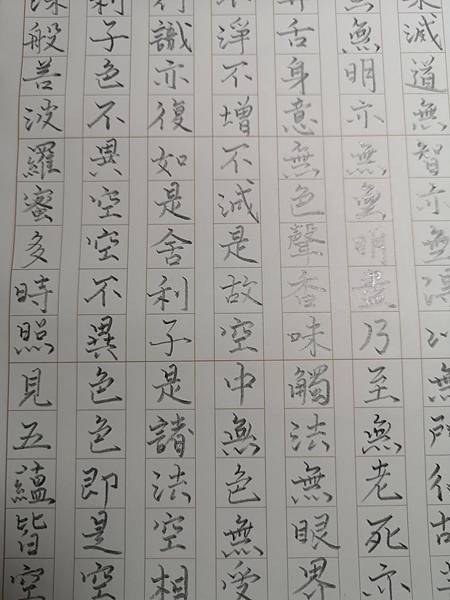 深般若波羅蜜多時照見五蘊皆空
利子色不異空空不異色色即是空
行識亦復如是舍利子是諸法空相
不淨不增不減是故空中無色無受
舌身意無色聲香味觸法無眼界
無明亦無無明盡乃至無老死亦
滅道無智亦無